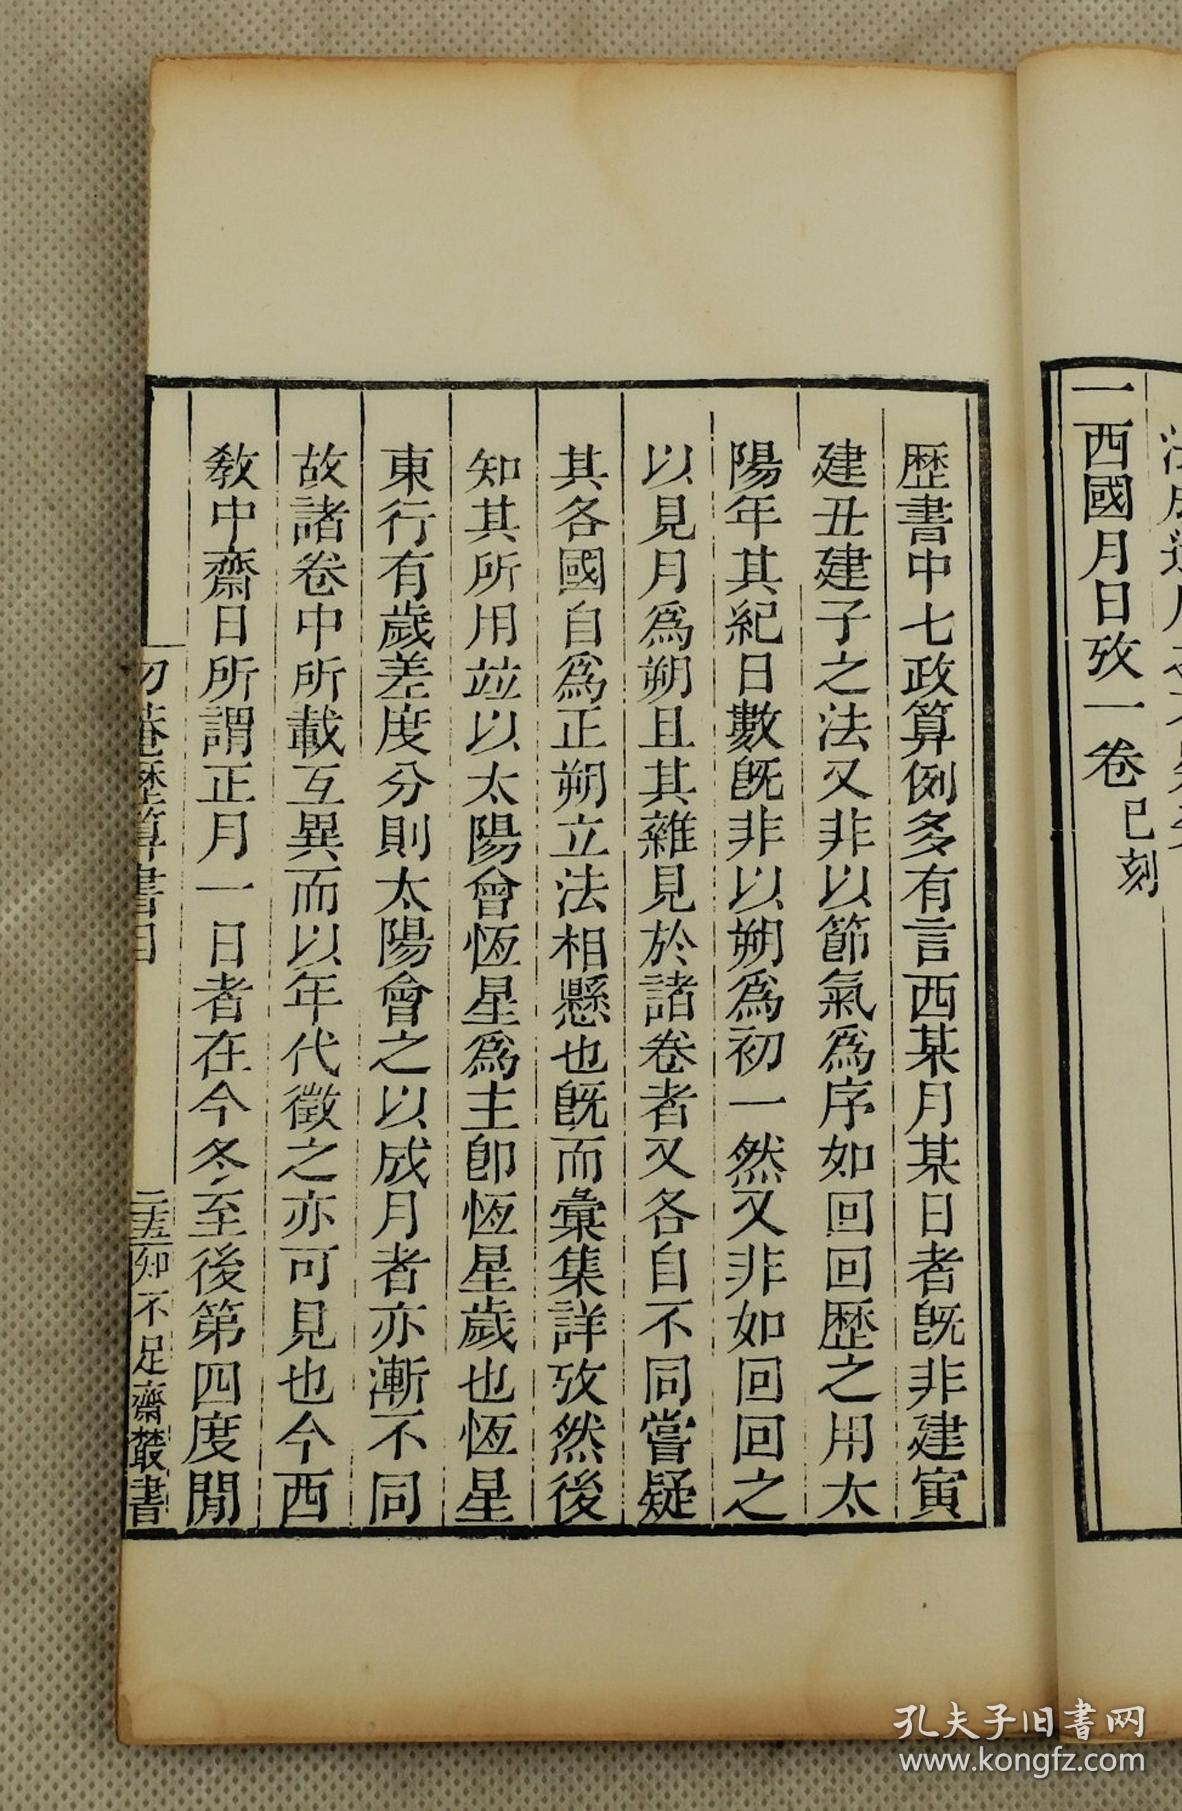 一西國月日攷一卷 已刻
歷書中七政算例多有言西某月某日者旣非建寅
建丑建子之法又非以節氣爲序如回回歷之用太
陽年其紀日數旣非以朔爲初一然又非如回回之
以見月爲朔且其雜見於諸卷者又各自不同嘗疑
其各國自爲正朔立法相懸也旣而彙集詳攷然後
知其所用竝以太陽會恆星爲主卽恆星歲也恆星
東行有歲差度分則太陽會之以成月者亦漸不同
故諸卷中所載互異而以年代徵之亦可見也今西
敎中齋日所謂正月一日者在今冬至後第四度閒
勿菴歷算書目
二十五
知不足齋叢書
孔夫子旧書网
www.kongfz.com